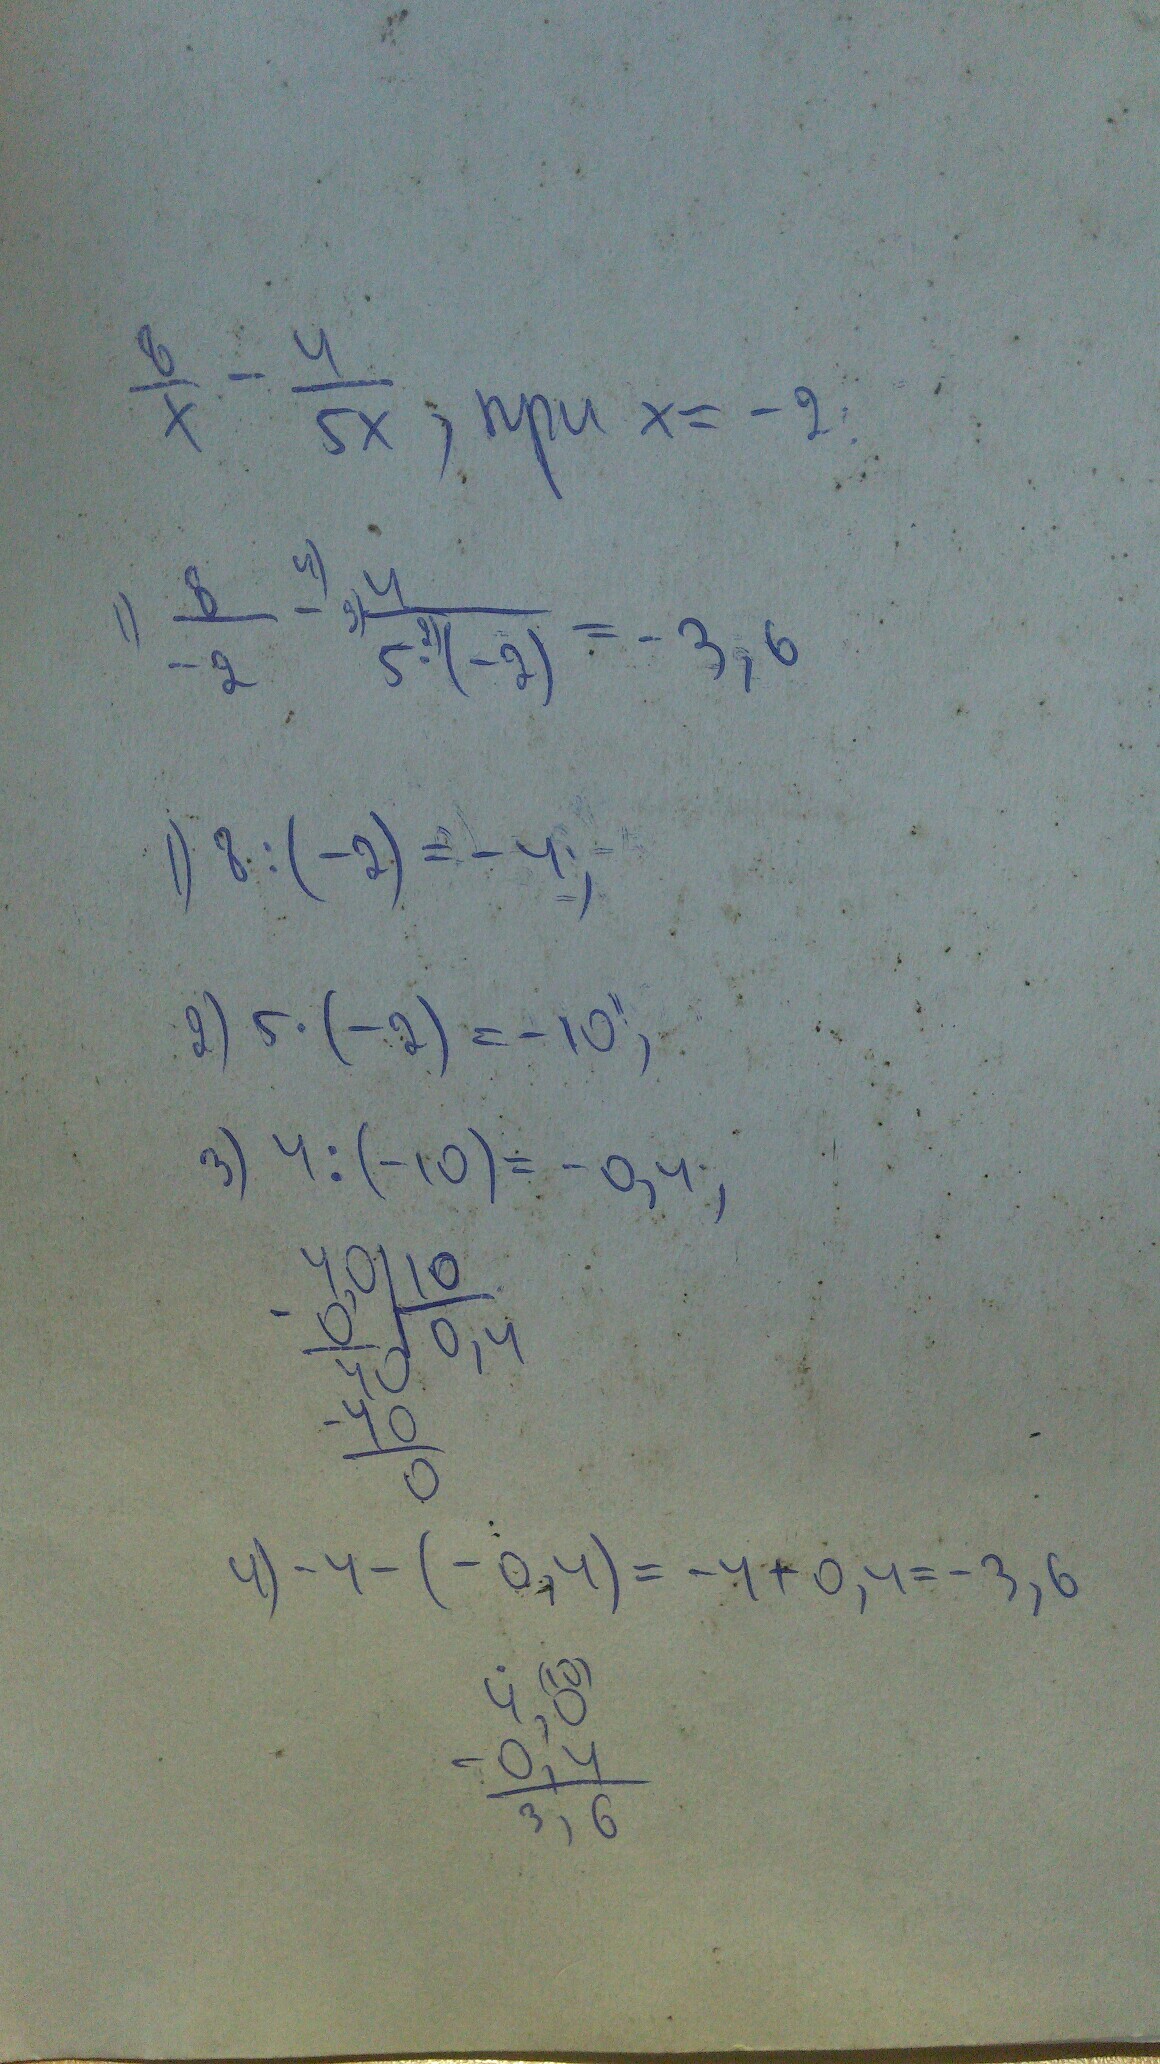 8/x - 4/5x, при x = -2:
1) 8/-2 -⁴⁾ ³⁾ 4/5·²⁾(-2) = -3,6
1) 8:(-2) = -4;
2) 5·(-2) = -10;
3) 4:(-10) = -0,4;
4,0 | 10
- 0,0 | 0,4
40
-40
0
4) -4-(-0,4) = -4+0,4 = -3,6
(10)
4,0
-0,4
3,6